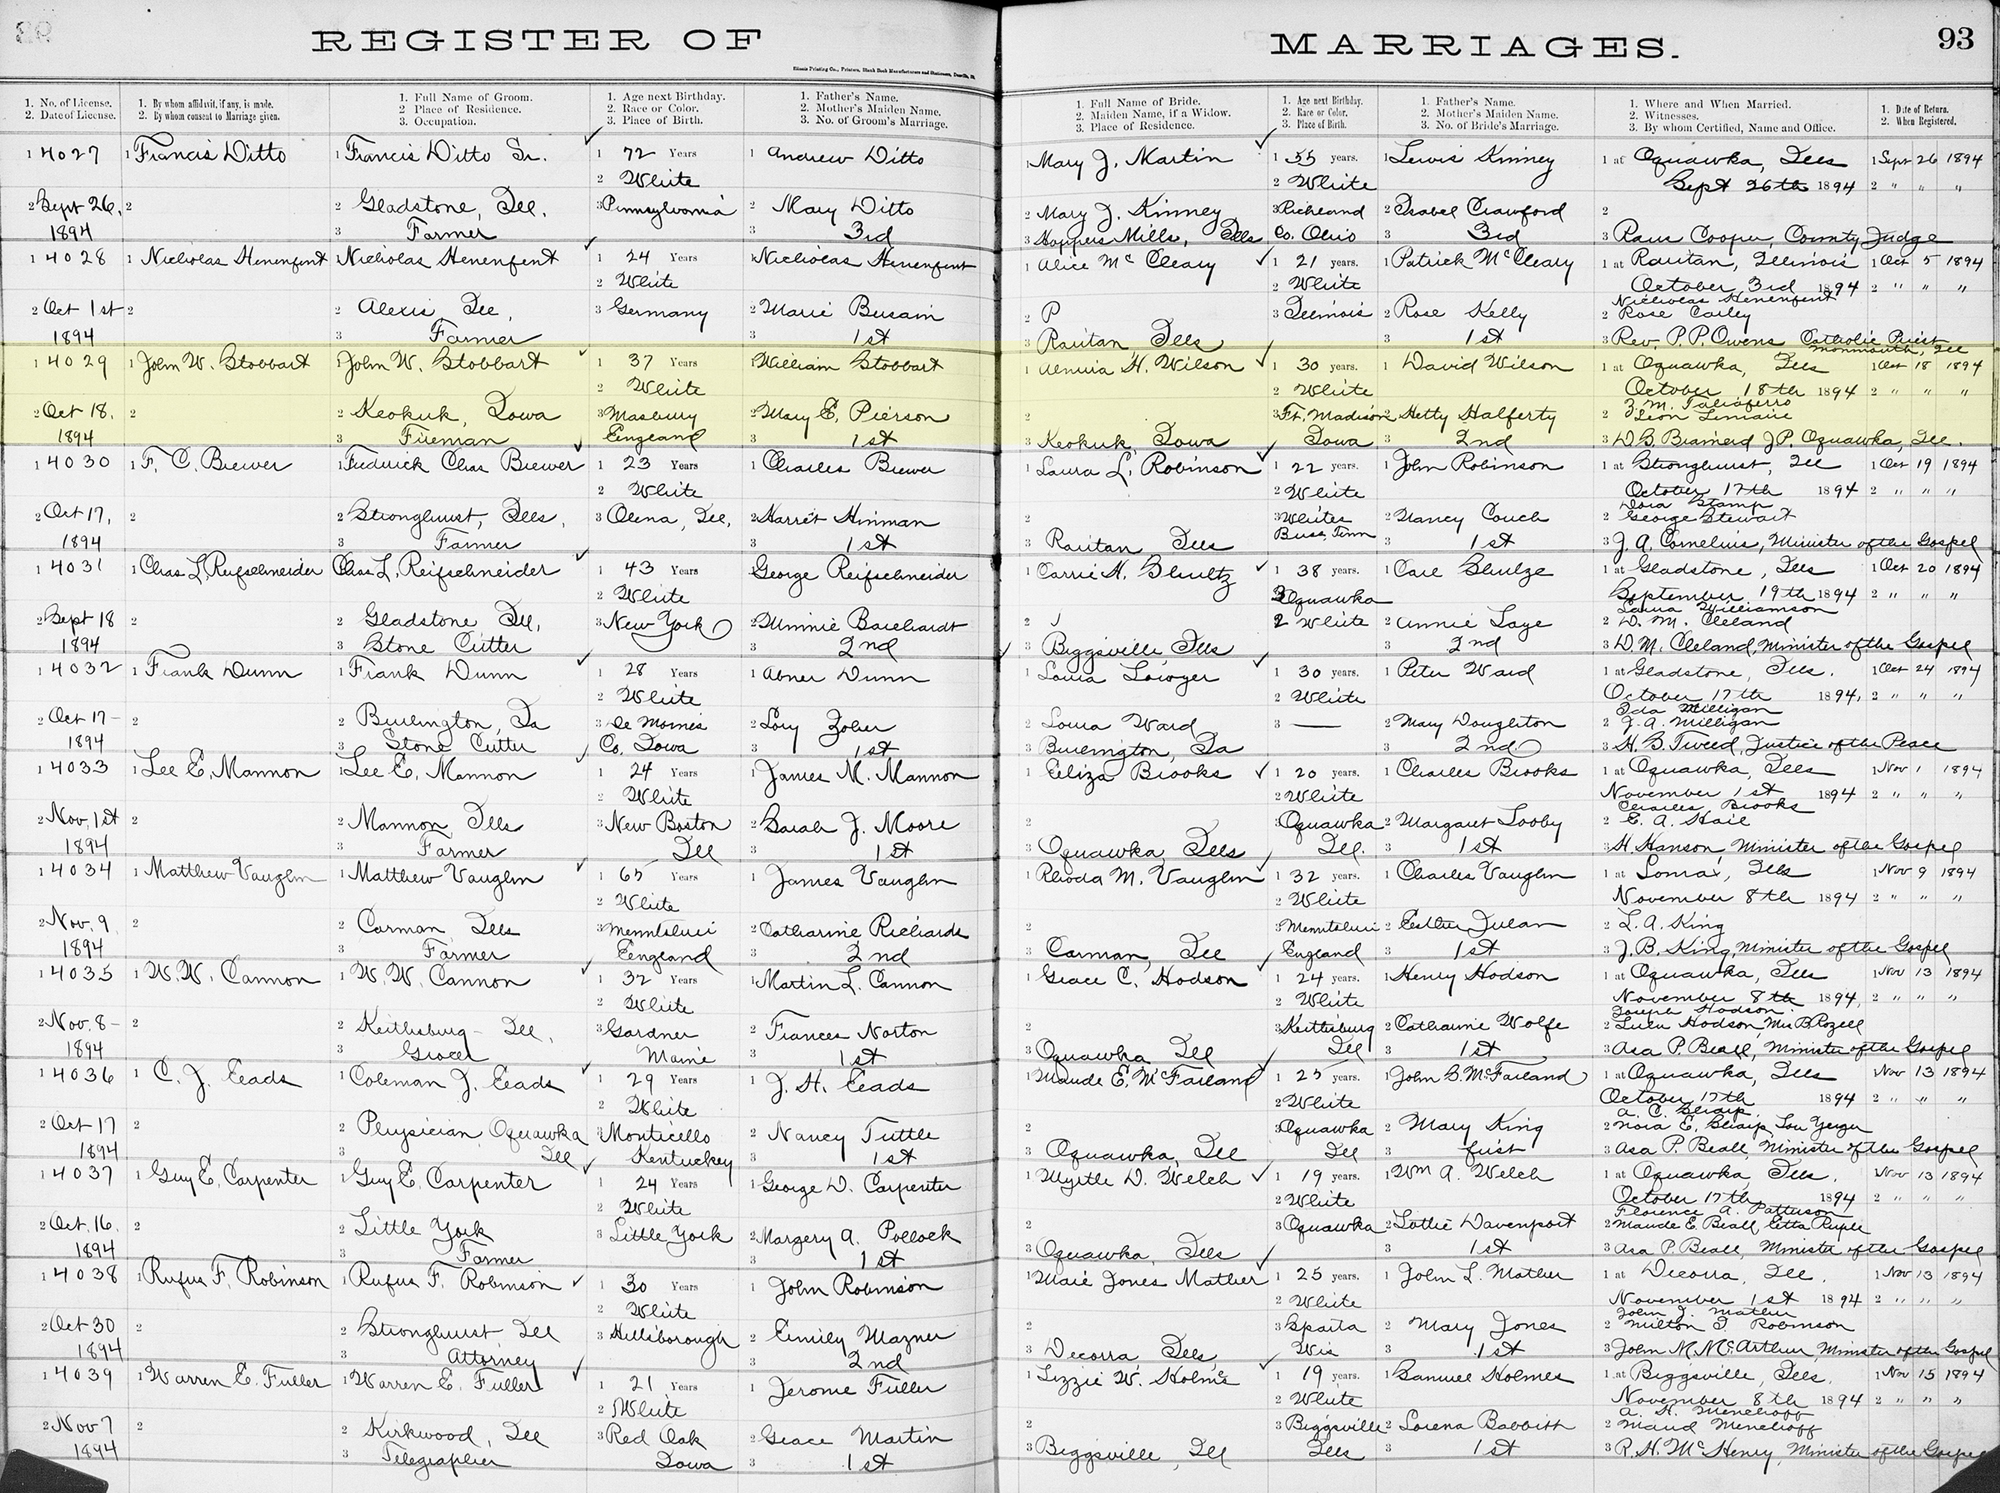 REGISTER OF
MARRIAGES.
93
Illinois Printing Co., Printers, Blank Book Manufacturers and Stationers, Danville, Ill.
1. No. of License.
2. Date of License.
1. By whom affidavit, if any, is made.
2. By whom consent to Marriage given.
1. Full Name of Groom.
2. Place of Residence.
3. Occupation.
1. Age next Birthday.
2. Race or Color.
3. Place of Birth.
1. Father's Name.
2. Mother's Maiden Name.
3. No. of Groom's Marriage.
1. Full Name of Bride.
2. Maiden Name, if a Widow.
3. Place of Residence.
1. Age next Birthday.
2. Race or Color.
3. Place of Birth.
1. Father's Name.
2. Mother's Maiden Name.
3. No. of Bride's Marriage.
1. Where and When Married.
2. Witnesses.
3. By whom Certified, Name and Office.
1. Date of Return.
2. When Registered.
1 4027 1 Francis Ditto 1 Francis Ditto Sr. 1 72 Years 1 Andrew Ditto 1 Mary J. Martin 1 55 years. 1 Lewis Kinney 1 at Oquawka, Ills 1 Sept 26 1894
2 White 2 White Sept 26th 1894 2 " " "
2 Sept 26, 2 2 Gladstone, Ill. 3 Pennsylvania 2 Mary Ditto 2 Mary J. Kinney 3 Richland 2 Isabel Crawford 2
1894 3 Farmer 3 3rd 3 Hoppers Mills, Ills Co. Ohio 3 3rd 3 Raus Cooper, County Judge
1 4028 1 Nicholas Henenfent 1 Nicholas Henenfent 1 24 Years 1 Nicholas Henenfent 1 Alice McCleary 1 21 years. 1 Patrick McCleary 1 at Raritan, Illinois 1 Oct 5 1894
2 White 2 White October 3rd 1894 2 " " "
Nicholas Henenfent
2 Oct 1st 2 2 Alexis Ill, 3 Germany 2 Marie Busain 2 P 3 Illinois 2 Rose Kelly 2 Rose Carley
1894 3 Farmer 3 1st 3 Raritan Ills 3 1st 3 Rev. P. P. Owens Catholic Priest
Monmouth, Ill
1 4029 1 John W. Stobbart 1 John W. Stobbart 1 37 Years 1 William Stobbart 1 H. Wilson 1 30 years. 1 David Wilson 1 at Oquawka, Ills 1 Oct 18 1894
2 White 2 White October 18th 1894 2 " " "
Z. M. Taliaferro
2 Oct 18. 2 2 Keokuk, Iowa 3 Masbury 2 Mary E. Pierson 2 3 Ft. Madison 2 Hetty Halferty 2 Leon Lemaire
1894 3 Fireman England 3 1st 3 Keokuk, Iowa Iowa 3 2nd 3 W. B. Brainerd J.P. Oquawka, Ill.
1 4030 1 F. C. Brewer 1 Fredrick Chas Brewer 1 23 Years 1 Charles Brewer 1 Laura L. Robinson 1 22 years. 1 John Robinson 1 at Stronghurst, Ill 1 Oct 19 1894
2 White 2 White October 17th 1894 2 " " "
Dora Stamp
2 Oct 17, 2 2 Stronghurst, Ills, 3 Olena, Ill, 2 Harriet Hinman 2 3 Whites 2 Nancy Couch 2 George Stewart
1894 3 Farmer 3 1st 3 Raritan Ills Tenn 3 1st 3 J. A. Cornelius, Minister of the Gospel
1 4031 1 Chas L. Reifschneider 1 Chas L. Reifschneider 1 43 Years George Reifschneider 1 Carrie H. Shultz 1 38 years. 1 Carl Shulze 1 at Gladstone, Ills 1 Oct 20 1894
2 White 3 Oquawka September 19th 1894 2 " " "
Laura Williamson
2 Sept 18 2 2 Gladstone Ill, 3 New York 2 Minnie Barchardt 2 2 White 2 Annie Laye 2 D. M. Cleland
1894 3 Stone Cutter 3 2nd 3 Biggsville, Ills 3 2nd 3 D. M. Cleland, Minister of the Gospel
1 4032 1 Frank Dunn 1 Frank Dunn 1 28 Years 1 Abner Dunn 1 Sawyer 1 30 years. 1 Peter Ward 1 at Gladstone, Ills. 1 Oct 24 1894
2 White 2 White October 17th 1894, 2 " " "
Ida Milligan
2 Oct 17- 2 2 Burlington, Ia 3 De Moines 2 2 Ward 3 — 2 Mary Doughton 2 J. A. Milligan
1894 3 Stone Cutter Co. Iowa 3 1st 3 Burlington, Ia 3 2nd 3 H. B. Tweed, Justice of the Peace
1 4033 1 Lee E. Mannon 1 Lee E. Mannon 1 24 Years 1 James M. Mannon 1 Eliza Brooks 1 20 years. 1 Charles Brooks 1 at Oquawka, Ills 1 Nov 1 1894
2 White 2 White November 1st 1894 2 " " "
Charles Brooks
2 Nov, 1st 2 2 Mannon, Ills 3 New Boston 2 Sarah J. Moore 2 3 Oquawka 2 Margaret Looby 2 E. A. Hail
1894 3 Farmer Ill 3 1st 3 Oquawka, Ills Ill. 3 1st 3 H. Hanson, Minister of the Gospel
1 4034 1 Matthew Vaughn 1 Matthew Vaughn 1 65 Years 1 James Vaughn 1 Rhoda M. Vaughn 1 32 years. 1 Charles Vaughn 1 at Lomax, Ills 1 Nov 9 1894
2 White 2 White November 8th 1894 2 " " "
2 Nov, 9 2 2 Carman, Ills 2 Catharine Richards 2 2 Esther Julan 2 L. A. King
1894 3 Farmer England 3 2nd 3 Carman, Ill England 3 1st 3 J. B. King, Minister of the Gospel
1 4035 1 W. W. Cannon 1 W. W. Cannon 1 32 Years 1 Martin L. Cannon 1 Grace C. Hodson 1 24 years. 1 Henry Hodson 1 at Oquawka, Ills 1 Nov 13 1894
2 White 2 White November 8th 1894, 2 " " "
Joseph Hodson.
2 Nov. 8- 2 2 Keithsburg- Ill, 3 Gardner 2 Frances Norton 2 3 Keithsburg 2 Catharine Wolfe 2 Lulu Hodson, Mrs B. Rozell
1894 3 Grocer Maine 3 1st 3 Oquawka Ill Ill 3 1st 3 Asa P. Beall, Minister of the Gospel
1 4036 1 C. J. Eads 1 Coleman J. Eads 1 29 Years 1 J. H. Eads 1 Maude E. McFarland 1 25 years. 1 John B. McFarland 1 at Oquawka, Ills Nov 13 1894
2 White 2 White October 17th 1894 2 " " "
2 Oct 17 2 2 Physician, Oquawka 3 Monticello 2 Nancy Tuttle 2 3 Oquawka 2 Mary King 2 Nora E. Lou Yerger
1894 3 Ill Kentuckey 3 1st 3 Oquawka, Ill Ill 3 first 3 Asa P. Beall, Minister of the Gospel
1 4037 1 Guy E. Carpenter 1 Guy E. Carpenter 1 24 Years 1 George D. Carpenter 1 Myrtle D. Welch 1 19 years. 1 Wm A. Welch 1 at Oquawka, Ills. Nov 13 1894
2 White 2 White October 17th 1894 2 " " "
Florence A. Patterson
2 Oct. 16. 2 2 Little York 3 Little York 2 Margery A. Pollock 2 3 Oquawka 2 Lottie Davenport 2 Maude E. Beall, Etta
1894 3 Farmer 3 1st 3 Oquawka, Ills 3 1st 3 Asa P. Beall, Minister of the Gospel
1 4038 1 Rufus F. Robinson 1 Rufus F. Robinson 1 30 Years 1 John Robinson 1 Marie Jones Mather 1 25 years. 1 John L. Mather 1 at Decorra, Ill. 1 Nov 13 1894
2 White 2 White November 1st 1894 2 " " "
John J. Mather
2 Oct 30 2 2 Stronghurst Ill 3 Hillsborough 2 Emily Mazner 2 3 Sparta 2 Mary Jones 2 Milton T Robinson
1894 3 Attorney 3 2nd 3 Decorra, Ills, Wis 3 1st 3 John M. McArthur, Minister of the Gospel
1 4039 1 Warren E. Fuller 1 Warren E. Fuller 1 21 Years 1 Jerome Fuller 1 Lizzie W. Holmes 1 19 years. 1 Samuel Holmes 1 at Biggsville, Ills. 1 Nov 15 1894
2 White 2 White November 8th 1894 2 " " "
2 Nov 7 2 2 Kirkwood, Ill 3 Red Oak 2 Grace Martin 2 3 Biggsville 2 Lorena Babbitt 2 Maud
1894 3 Telegrapher Iowa 3 1st 3 Biggsville, Ill Ills 3 1st 3 R. H. McHenry, Minister of the Gospel